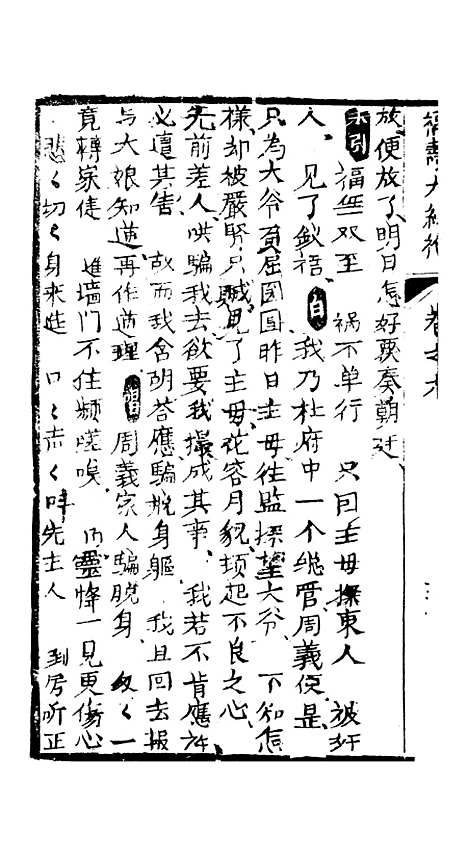 放便放了明日怎好要奏朝廷
末引 福無双至 禍不单行 只因主母探東人 被奸
人 見了 白 我乃杜府中一个總管周義便是
只為大爷 屈 昨日主母往監探望大爷 不知怎
樣却被嚴賢只賊見了主母花容月貌頓起不良之心
先前差人哄騙我去欲要我撮成其事 我若不肯應許
必遭其害 故而我含胡荅應騙脱身軀 我且回去报
与大娘知道再作道理 唱 周義家人騙脱身 一
竟轉家使 進墙門不住頻嗟嘆 内靈悼一見更傷心
悲〻切〻身來 口〻 〻叫先主人 到房听正